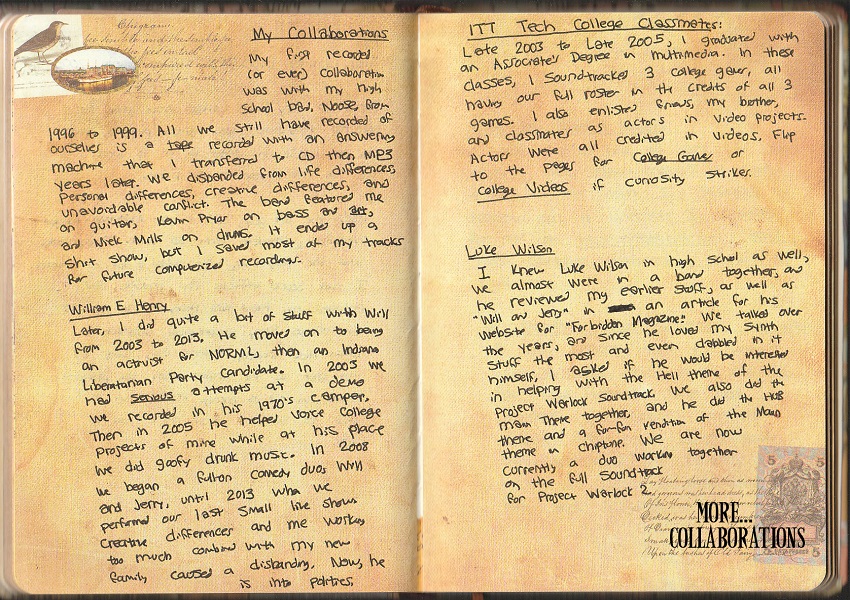 My Collaborations
My first recorded
(or ever) collaboration
was with my high
School band, Noose, from
1996 to 1999. All we still have recorded of
ourselves is a tape recorded with an answering
machine that I transferred to CD then MP3
years later. We disbanded from life differences,
Personal differences, creative differences, and
unavoidable conflict. The band featured me
on guitar, Kevin Pryor on bass and
and Nick Mills on drums. It ended up a
Shit Show, but I saved most of my tracks
for future computerized recordings.
William E. Henry
Later, I did quite a bit of stuff with Will
from 2003 to 2013. He moved on to being
an activist for NORML, then an Indiana
Libertarian Party candidate. In 2003 we
had serious attempts at a demo
we recorded in his 1970's camper,
Then in 2005 he helped voice College
Projects of mine while at his place
we did goofy drunk music. In 2008
we began a fullon comedy duo, Will
and Jerry, until 2013 when we
performed our last small live show.
Creative differences and me working
too much combined with my new
family caused a disbanding. Now, he
is into politics.
ITT Tech College Classmates:
Late 2003 to Late 2005, I graduated with
an Associates Degree in multimedia. In these
classes, I Soundtracked 3 college games, all
having our full roster in the credits of all 3
games. I also enlisted friends, my brother,
and classmates as actors in video projects.
Actors were all credited in videos, Flip
to the pages for College Games or
College Videos if curiosity strikes.
Luke Wilson
I knew Luke Wilson in high school as well,
we almost were in a band together, and
he reviewed my earlier stuff, as well as
"Will and Jerry" in an article for his
website for "Forbidden Magazine." We talked over
the years, and since he loved my Synth
Stuff the most and even dabbled in it
himself, I asked if he would be interested
in helping with the Hell theme of the
Project Warlock Soundtrack. We also did the
main theme together, and he did the HUB
theme and a for-fun rendition of the Main
theme in chiptune. We are now
currently a duo working together
on the full Soundtrack
for Project Warlock 2.
MORE...
COLLABORATIONS